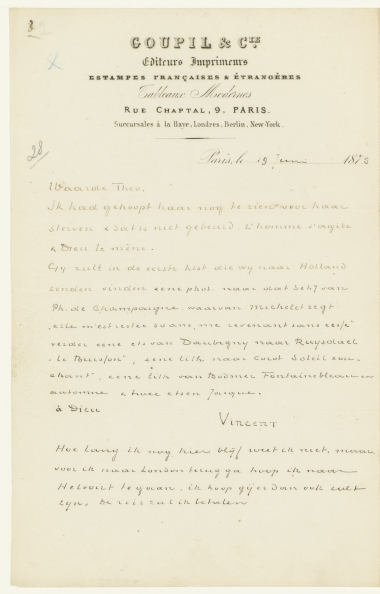 28
GOUPIL & Cie
Editeurs Imprimeurs
ESTAMPES FRANÇAISES & ÉTRANGÈRES
Tableaux Modernes
RUE CHAPTAL, 9, PARIS.
Succursales à la Haye, Londres, Berlin, New-York.
Paris, le 19 Juni 1875
Waarde Theo,
Ik had gehoopt haar nog te zien voor haar
sterven & dat is niet gebeurd. L'homme s'agite
& Dieu le mène.
Gij zult in de eerste kist die wij naar Holland
zenden vinden eene phot. naar dat schij van
Ph. de Champaigne, waarvan Michelet zegt:
"elle m'est restée 30 ans, me revenant sans cesse"
verder eene ets van Daubigny naar Ruysdael
"le Buisson", eene lith. naar Corot Soleil cou-
chant", eene lith. van Bodmer Fontainebleau en
automne & twee etsen Jacque.
à Dieu
VINCENT
Hoe lang ik nog hier blijf weet ik niet, maar
voor ik naar Londen terug ga hoop ik naar
Helvoirt te gaan, ik hoop gij er dan ook zult
zijn. De reis zal ik betalen